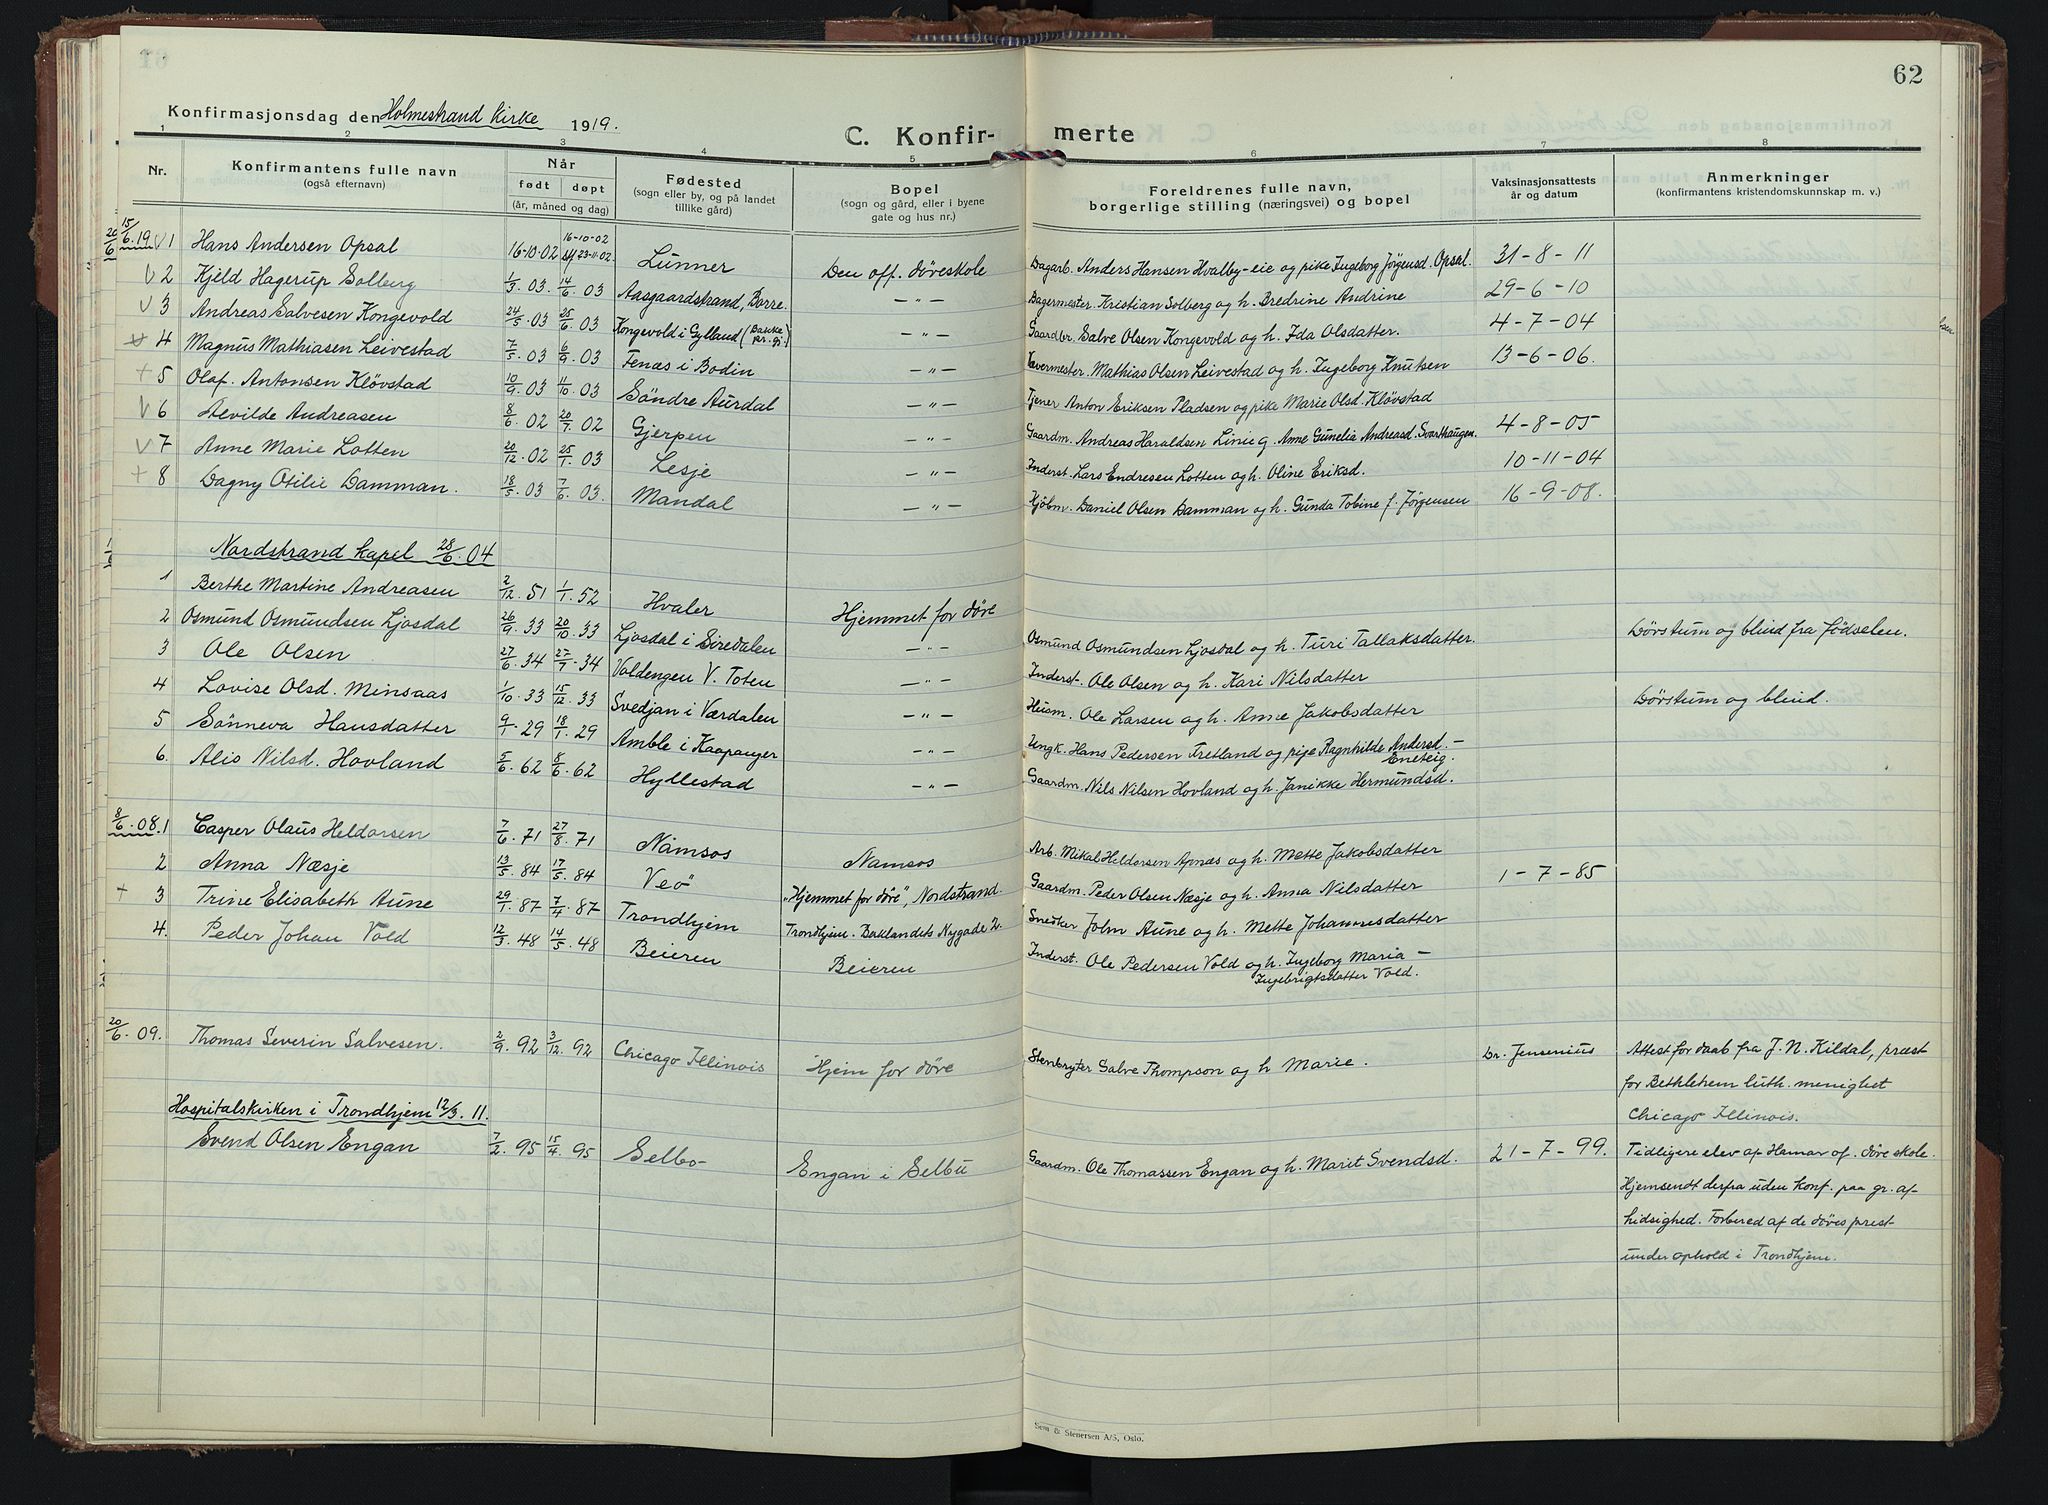 62
Konfirmasjonsdag den Holmestrand Kirke 1919.
C. Konfir- merte
1 2 3 4 5 6 7 8
Nr. Konfirmantens fulle navn (også efternavn) Når født døpt (år, måned og dag) Fødested (sogn eller by, og på landet tillike gård) Bopel (sogn og gård, eller i byene gate og hus nr.) Foreldrenes fulle navn, borgerlige stilling (næringsvei) og bopel Vaksinasjonsattests år og datum Anmerkninger (konfirmantens kristendomskunnskap m. v.)
15/6.19 1 Hans Andersen Opsal 16-10-02 16-10-02 23-11-02 Lunner Den off. døveskole Dagarb. Anders Hansen Hvalby-eie og pike Ingeborg Jörgensd. Opsal. 31-8-11
2 Kjeld Hagerup Solberg 1/3 03. 14/6 03 Aasgaardstrand, Borre. -"- Bagermester. Kristian Solberg og h. Bredrine Andrine 29-6-10
3 Andreas Salvesen Kongevold 24/5 03 25/6 03 Kongevold i Gylland (Bakke pr. gj.) -"- Gaardbr. Salve Olsen Kongevold og h. Ida Olsdatter. 4-7-04
4 Magnus Mathiasen Leivestad 7/5 03 6/9 03 Fenæs i Bodin -"- Mathias Olsen Leivestad og h. Ingeborg Knutsen 13-6-06.
5 Olaf. Antonsen Klövstad 10/9 03 11/10 03 Söndre Aurdal -"- Tjener Anton Eriksen Pladsen og pike Marie Olsd. Klövstad
6 Aevilde Andreasen 8/6 02 20/7 02 Gjerpen -"- Gaardm. Andreas Haraldsen Linie g. Anne Gunelia Andreasd. Svarthaugen. 4-8-05
7 Anne Marie Lotten 20/12 02 25/1 03 Lesje -"- Inderst. Lars Endresen Lotten og h. Oline Eriksd. 10-11-04
8 Dagny Otilie Damman. 18/5 03 7/6 03. Mandal -"- Kjöbm. Daniel Olsen Damman og h. Gunda Tobine f. Jørgensen 16-9-08.
Nordstrand kapel 28/6.04
1 Berthe Martine Andreasen 2/12. 51 1/1. 52 Hvaler Hjemmet for døve
2 Osmund Osmundsen Ljosdal 26/9. 33 20/10. 33 Ljosdal i Siredalen -"- Osmund Osmundsen Ljosdal og h. Turi Tallaksdatter. Dövstum og blind fra fødselen.
3 Ole Olsen 27/6. 34 27/7. 34 Valdengen V. Toten -"- Inderst. Ole Olsen og h. Kari Nilsdatter
4 Lovise Olsd. Minsaas 1/10. 33 15/12. 33 Svedjan i Værdalen -"- Husm. Ole Larsen og h. Anne Jakobsdatter Dövstum og blind.
5 Sönneva Hansdatter 9/1 29 18/1. 29 Amble i Kaapanger -"- Ungk. Hans Pedersen Fretland og pige Ragnhilde Andersd. - Eneteig.
6. Alis Nilsd. Hovland 5/6. 62 8/6. 62 Hyllestad -"- Gaardm. Nils Nilsen Hovland og h. Janikke Hermundsd.
8/6.08. 1 Casper Olaus Heldorsen 7/6. 71 27/8. 71 Namsos Namsos Arb. Mikal Heldorsen Apnæs og h. Mette Jakobsdatter
2 Anna Næsje 13/5. 84 17/5. 84 Veö "Hjemmet for døve", Nordstrand. Gaardm. Peder Olsen Næsje og h. Anna Nilsdatter 1-7-85
3 Trine Elisabeth Aune 29/1. 87 7/4. 87 Trondhjem Trondhjem. Baklandets Nygade 2. Snedker John Aune og h. Mette Johannesdatter
4. Peder Johan Vold 12/3. 48 14/5. 48 Beieren Beieren Inderst. Ole Pedersen Vold og h. Ingeborg Maria - Ingebrigtsdatter Vold.
20/6.09. Thomas Severin Salvesen. 2/9. 92 3/12. 92 Chicago Illinois Hjem for døve Stenbryter Salve Thompson og h Marie. Dr. Jensenius Attest for daab fra J. N. Kildal, præst
for Bethlehem luth. menighet
Chicago Illinois.
Hospitalskirken i Trondhjem 12/3. 11.
Svend Olsen Engan 7/2. 95 15/4. 95 Selbo Engan i Selbu Gaardm. Ole Thomassen Engan og h. Marit Svendsd. 21-7-99. Tidligere elev af Hamar of. döveskole.
Hjemsendt derfra uden konf. paa gr. af
hidsighed. Forbered af de døves prest
under ophold i Trondhjem.
Sem & Stenersen A/S, Oslo.